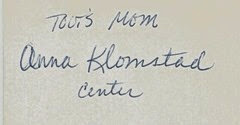 Toots's Mom
Anna Klomstad
center